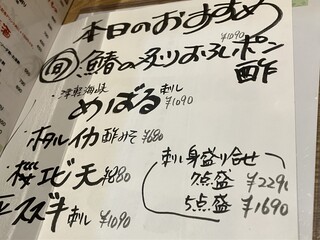 本日のおすすめ
旬 鰆の炙りおろしポン酢 ¥1090
津軽海峡
めばる 刺し ¥1090
・ホタルイカ 酢みそ ¥680
・桜エビ天 ¥880
スズキ 刺し ¥1090
刺し身盛り合せ
7点盛 ¥229
5点盛 ¥1690